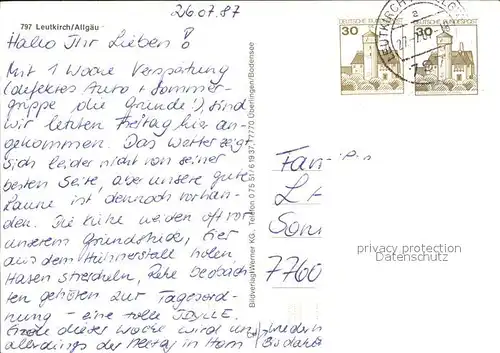 26.07.87
797 Leutkirch/Allgäu
Hallo Ihr Lieben!
Mit 1 Woche Verspätung
(defektes Auto + Sommer-
grippe die Gründe!), sind
wir letzten Freitag hier an-
gekommen. Das Wetter zeigt
sich leider nicht von seiner
besten Seite, aber unsere gute
Laune ist dennoch vorhan-
den. Die Kühe weiden oft vor
unserem Grundstück, Eier
aus dem Hühnerstall holen,
Hasen streicheln, Rehe beobach-
ten gehören zur Tagesord-
nung - eine tolle IDYLLE.
Ende dieser Woche wird uns
allerdings der Alltag in
wiederum
Bis dahin
Bildverlag Werner KG., Telefon 0 75 51/6 19 37, 7770 Überlingen/Bodensee
DEUTSCHE BUNDESPOST
30
DEUTSCHE BUNDESPOST
30
LEUTKIRCH
a
Fam.
7760
privacy protection
Datenschutz